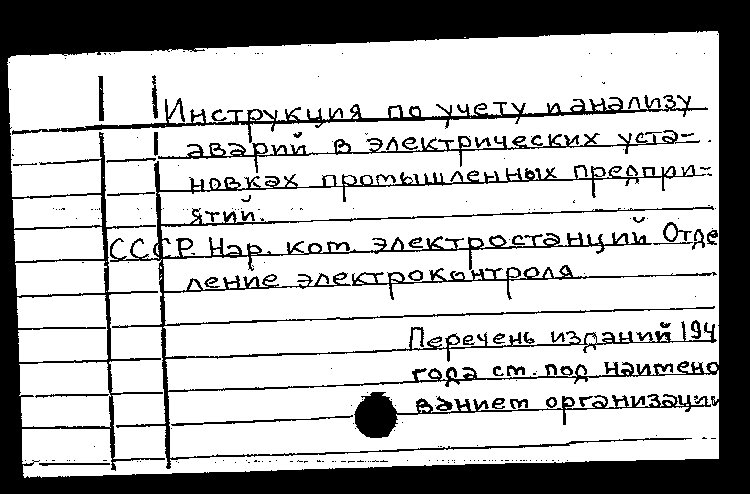 Инструкция по учету и анализу
аварий в электрических уста-
новках промышленных предпри-
ятий.
СССР. Нар. ком. электростанций Отде
ление электроконтроля
Перечень изданий 194
года ст. под наимено
ванием организации